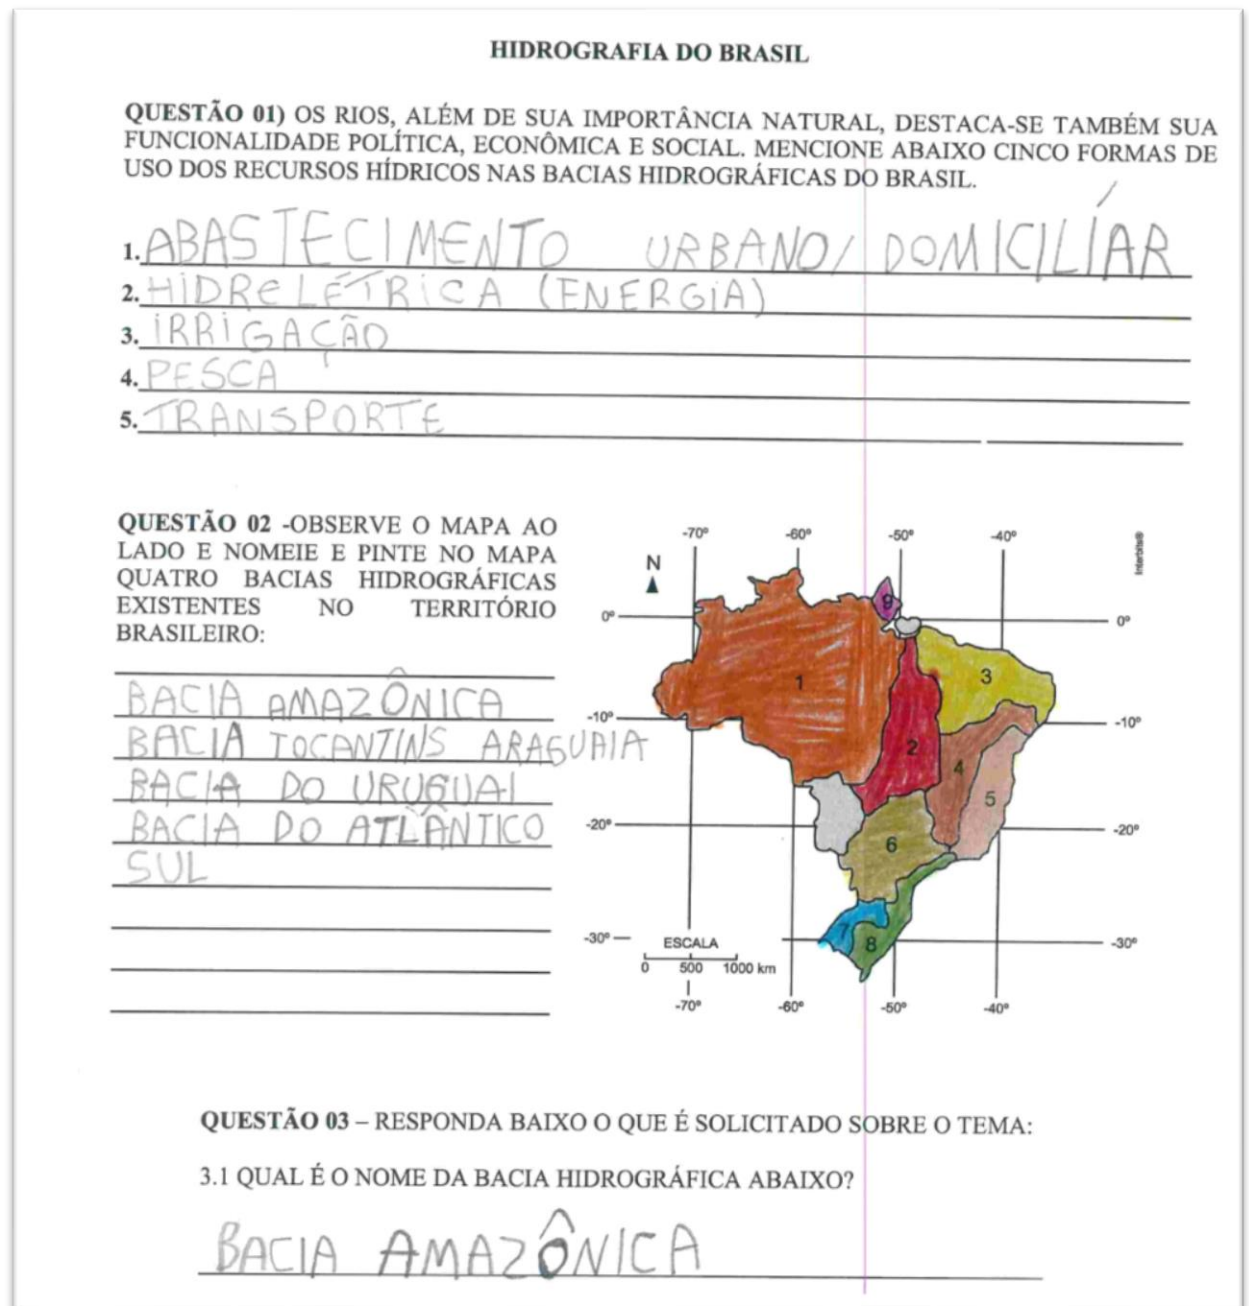 HIDROGRAFIA DO BRASIL
QUESTÃO 01) OS RIOS, ALÉM DE SUA IMPORTÂNCIA NATURAL, DESTACA-SE TAMBÉM SUA
FUNCIONALIDADE POLÍTICA, ECONÔMICA E SOCIAL. MENCIONE ABAIXO CINCO FORMAS DE
USO DOS RECURSOS HÍDRICOS NAS BACIAS HIDROGRÁFICAS DO BRASIL.
1. ABASTECIMENTO URBANO/ DOMICILÍAR
2. HIDRELÉTRICA (ENERGIA)
3. IRRIGAÇÃO
4. PESCA
5. TRANSPORTE
QUESTÃO 02 -OBSERVE O MAPA AO
LADO E NOMEIE E PINTE NO MAPA
QUATRO BACIAS HIDROGRÁFICAS
EXISTENTES NO TERRITÓRIO
BRASILEIRO:
BACIA AMAZÔNICA
BACIA TOCANTINS ARAGUAIA
BACIA DO URUGUAI
BACIA DO ATLÂNTICO
SUL
-70º -60º -50º -40º
Interbits®
N
9
0º 0º
1
3
-10º -10º
2
4
5
-20º -20º
6
7
8
-30º -30º
ESCALA
0 500 1000 km
-70º -60º -50º -40º
QUESTÃO 03 – RESPONDA BAIXO O QUE É SOLICITADO SOBRE O TEMA:
3.1 QUAL É O NOME DA BACIA HIDROGRÁFICA ABAIXO?
BACIA AMAZÔNICA